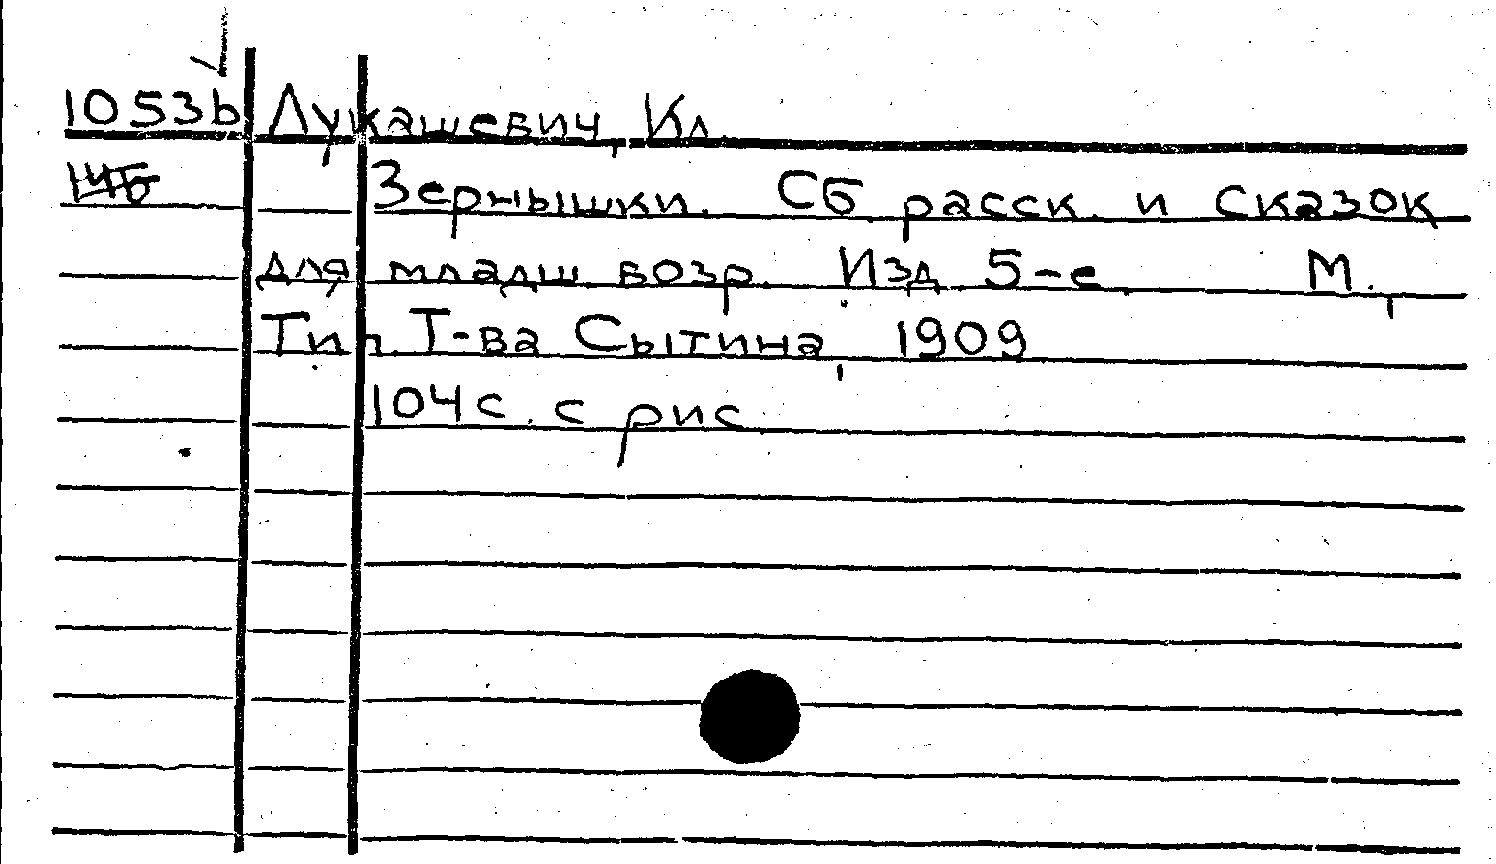 1053b Лукашевич, Кл.
146 Зернышки. Сб. расск. и сказок
для младш. возр. Изд. 5-е. М.,
Тип. Т-ва Сытина, 1909
104 с. с рис.